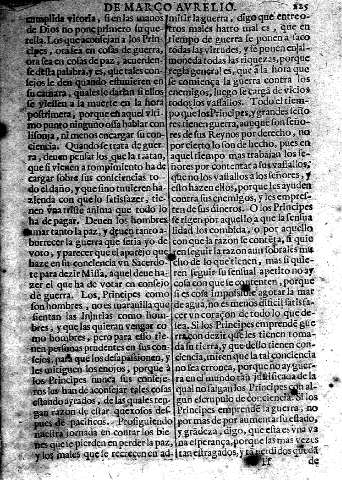 DE MARCO AVRELIO. 225
cumplida vitoria, si en las manos
de Dios no pone primero su que-
rella. Los que aconsejan a los Prin-
cipes, ora sea en cosas de guerra,
ora sea en cosas de paz, acuerden-
se desta palabra, y es, que tales con-
sejos le den quando estuuieren en
su camara, quales le darian si ellos
se viessen a la muerte en la hora
postrimera, porque en aquel viti-
mo punto ninguno ossa hablar con
lisonja, ni menos encargar su con-
ciencia. Quando se trata de guer-
ra, deuen pensar los que la tratan,
que si vienen a rompimiento ha de
cargar sobre sus conciencias to-
do el daño, y que sino tuuieren ha-
zienda con que lo satisfazer, tie-
nen vna triste anima que todo lo
ha de pagar. Deuen los hombres
amar tanto la paz, y deuen tanto a-
borrecer la guerra que seria yo de
voto, y parecer que el aparejo que
haze en su conciencia vn Sacerdo-
te para dezir Missa, aquel deue ha-
zer el que ha de votar en consejo
de guerra. Los Principes como
son hombres, no es marauilla que
sientan las injurias como hom-
bres, y que las quieran vengar co
mo hombres, pero para esto tie-
nen personas prudentes en sus con-
sejos, para que los desapassionen, y
les mitiguen los enojos, porque a
los Principes nunca sus conseje-
ros les han de aconsejar tales cosas
estando ayrados, de las quales ten-
gan razon de estar quexosos des-
pues de pacificos. Prosiguiendo
nuestra jornada en contar los bie-
nes que se pierden en perder la paz,
y los males que se recrecen en ad-
mitir la guerra, digo que entre o-
tros males harto mal es, que en
tiempo de guerra se ponen a saco
todas las virtudes, y se ponen en al-
moneda todas las riquezas, porque
regla general es, que a la hora que
se comiença la guerra contra los
enemigos, luego se carga de vicios
todos los vassallos. Todo el tiem-
po que los Principes, y grandes seño
res tienen guerra, aunque son seño-
res de sus Reynos por derecho, no
por cierto lo son de hecho, pues en
aquel tiempo mas trabajan los se-
ñores por contentar a sus vassallos,
que no los vassallos a los señores, y
esto hazen ellos, porque les ayuden
contra sus enemigos, y les empres-
ten de sus dineros. O los Principes
se rigen por aquello a que la sensua
lidad los combida, o por aquello
con que la razon se contēta, si quie
ren seguir la razon
cho de lo que tienen, mas si quie-
ren seguir su sensual apetito no ay
cosa con que se contenten, porque
si es cosa impossible agotar la mar
de agua, no es menos dificil satisfa-
zer vn coraçon de todo lo que de-
sea. Si los Principes emprende gue
rra, con dezir que les tienen toma-
da su tierra, y que dello tienen con-
ciencia, miren que la tal conciencia
no sea erronea, porque no ay guer-
ra en el mundo tan justificada de la
qual no salgan los Principes con al-
gun escrupulo de conciencia. Si los
Principes emprende la guerra, no
por mas de por aumentar su estado,
y grādeza, digo, que esta es vna va-
na esperança, porque las mas vezes
estragados, y
Ff de